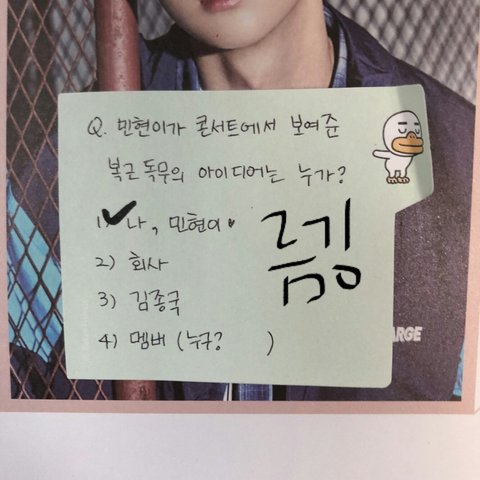 Q. 민현이가 콘서트에서 보여준
복근 독무의 아이디어는 누가?
1) ✔ 나, 민현이♥
2) 회사
3) 김종국
4) 멤버 (누구? )
ARGE